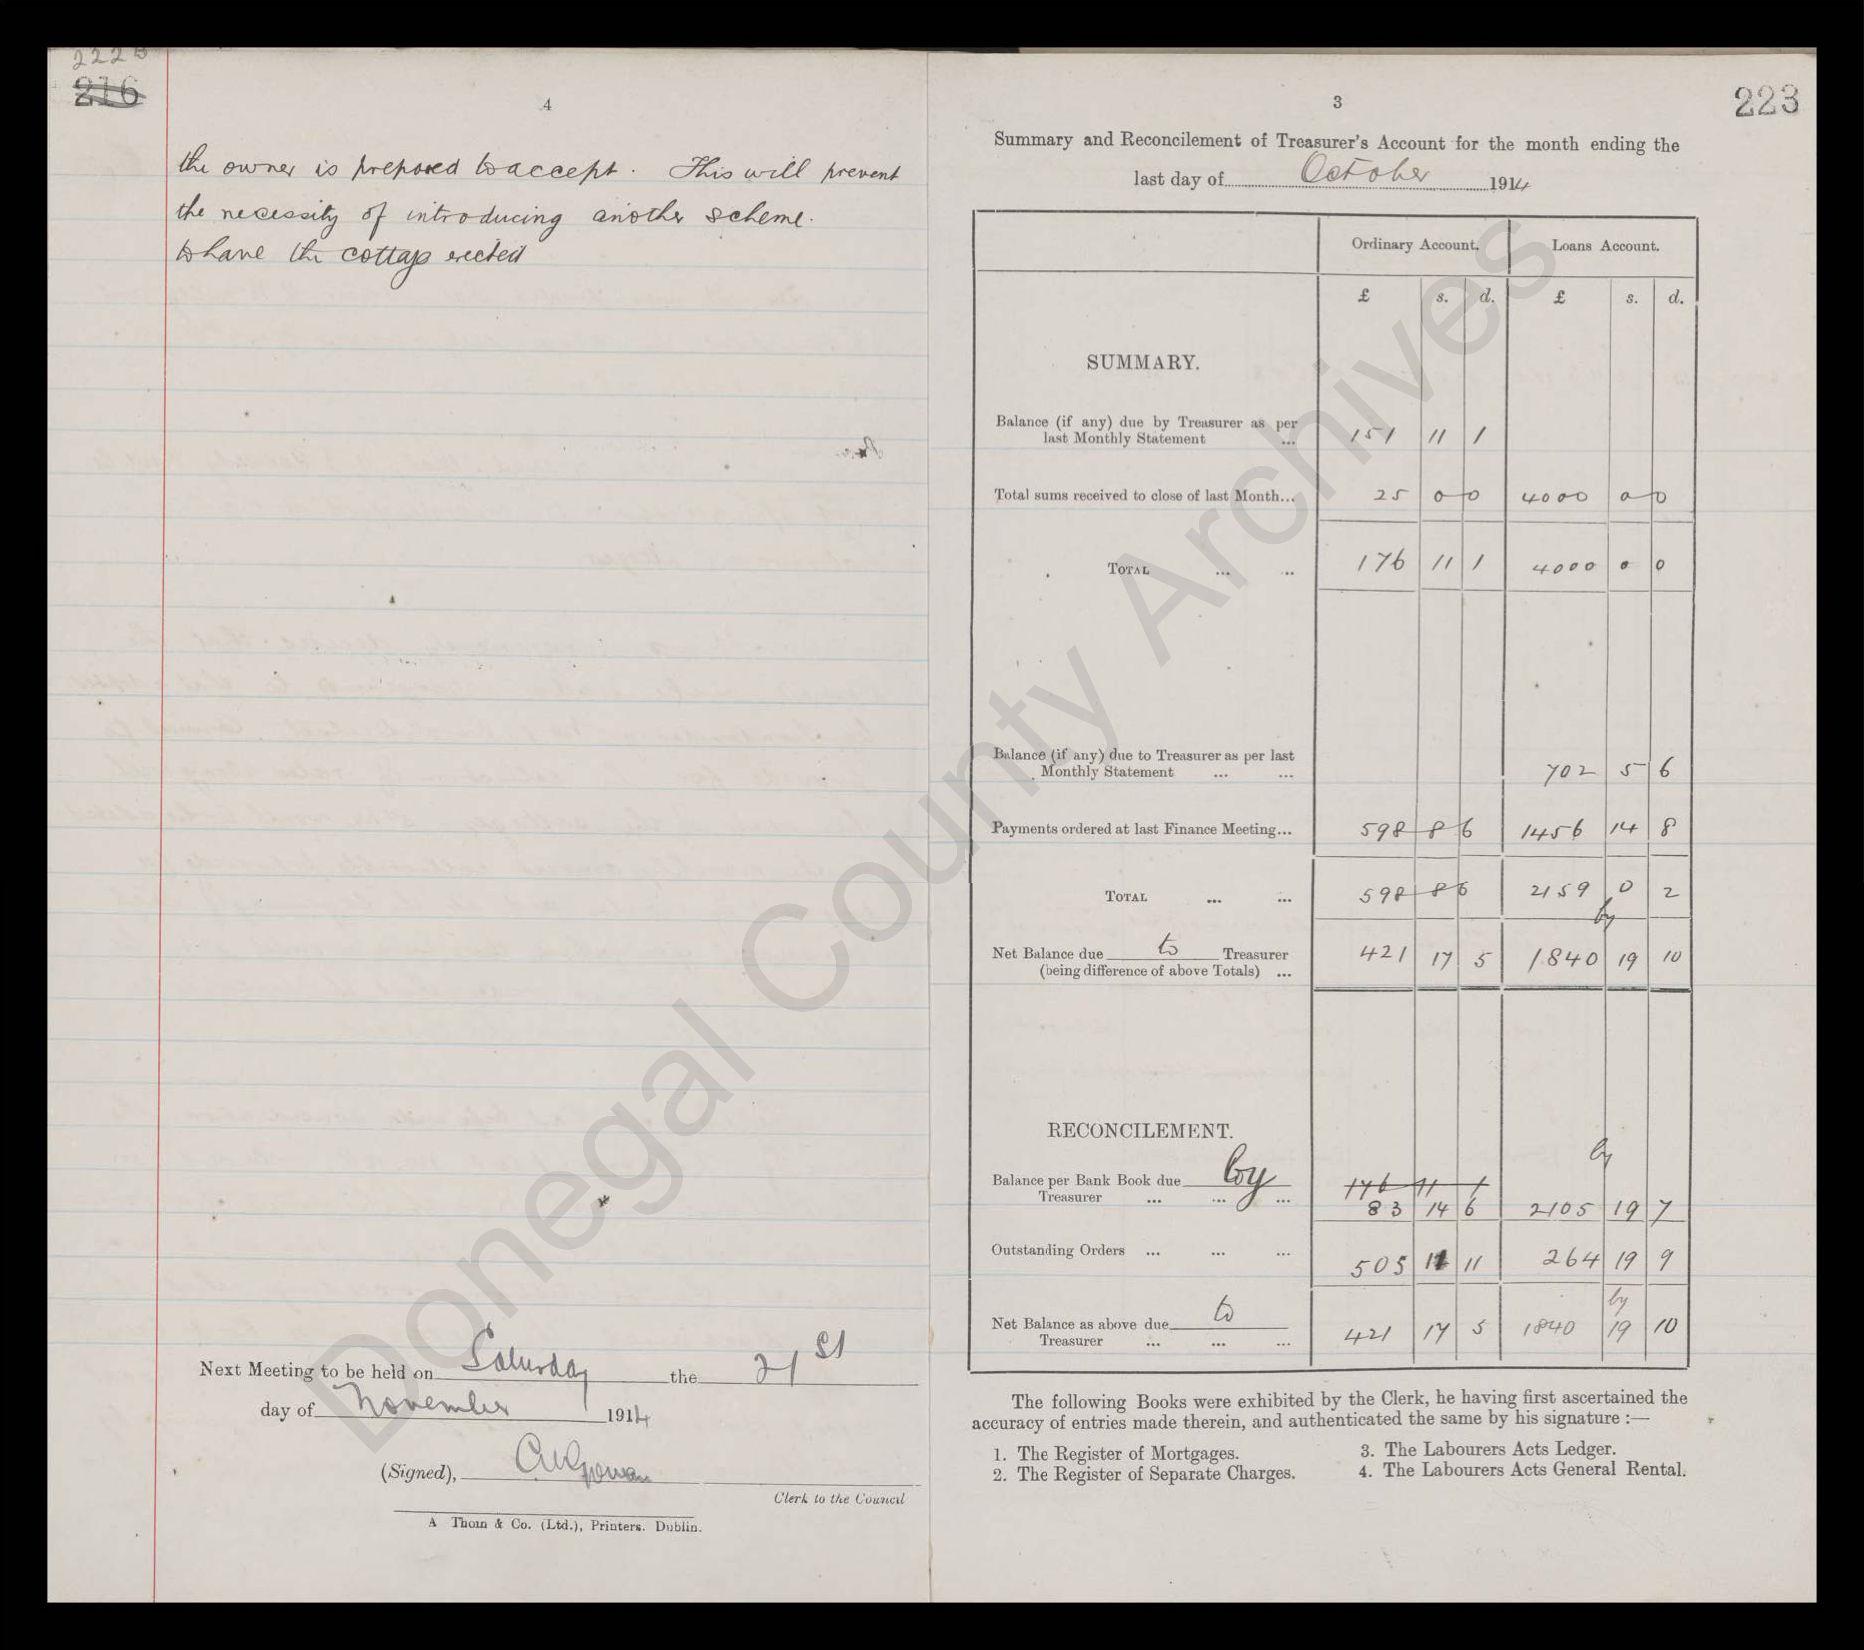 222B
216
4
the owner is prepared to accept. This will prevent
the necessity of introducing another scheme.
to have the cottage erected
Next Meeting to be held on Saturday the 21st
day of November 1914
(Signed),
Clerk to the Council
A Thom & Co. (Ltd.), Printers. Dublin.
3
223
Summary and Reconcilement of Treasurer's Account for the month ending the
last day of October 1914
Ordinary Account. Loans Account.
£ s. d. £ s. d.
SUMMARY.
Balance (if any) due by Treasurer as per
last Monthly Statement ... 151 11 1
Total sums received to close of last Month... 25 0 0 4000 0 0
TOTAL ... ... 176 11 1 4000 0 0
Balance (if any) due to Treasurer as per last
Monthly Statement ... ... 702 5 6
Payments ordered at last Finance Meeting... 598 8 6 1456 14 8
TOTAL ... ... 598 8 6 2159 0 2
by
Net Balance due to Treasurer 421 17 5 1840 19 10
(being difference of above Totals) ...
RECONCILEMENT.
by
Balance per Bank Book due by 176 11 1
Treasurer ... ... ... 83 14 6 2105 19 7
Outstanding Orders ... ... ... 505 11 11 264 19 9
by
Net Balance as above due to
Treasurer ... ... ... 421 17 5 1840 19 10
The following Books were exhibited by the Clerk, he having first ascertained the
accuracy of entries made therein, and authenticated the same by his signature :—
1. The Register of Mortgages. 3. The Labourers Acts Ledger.
2. The Register of Separate Charges. 4. The Labourers Acts General Rental.
Donegal County Archives